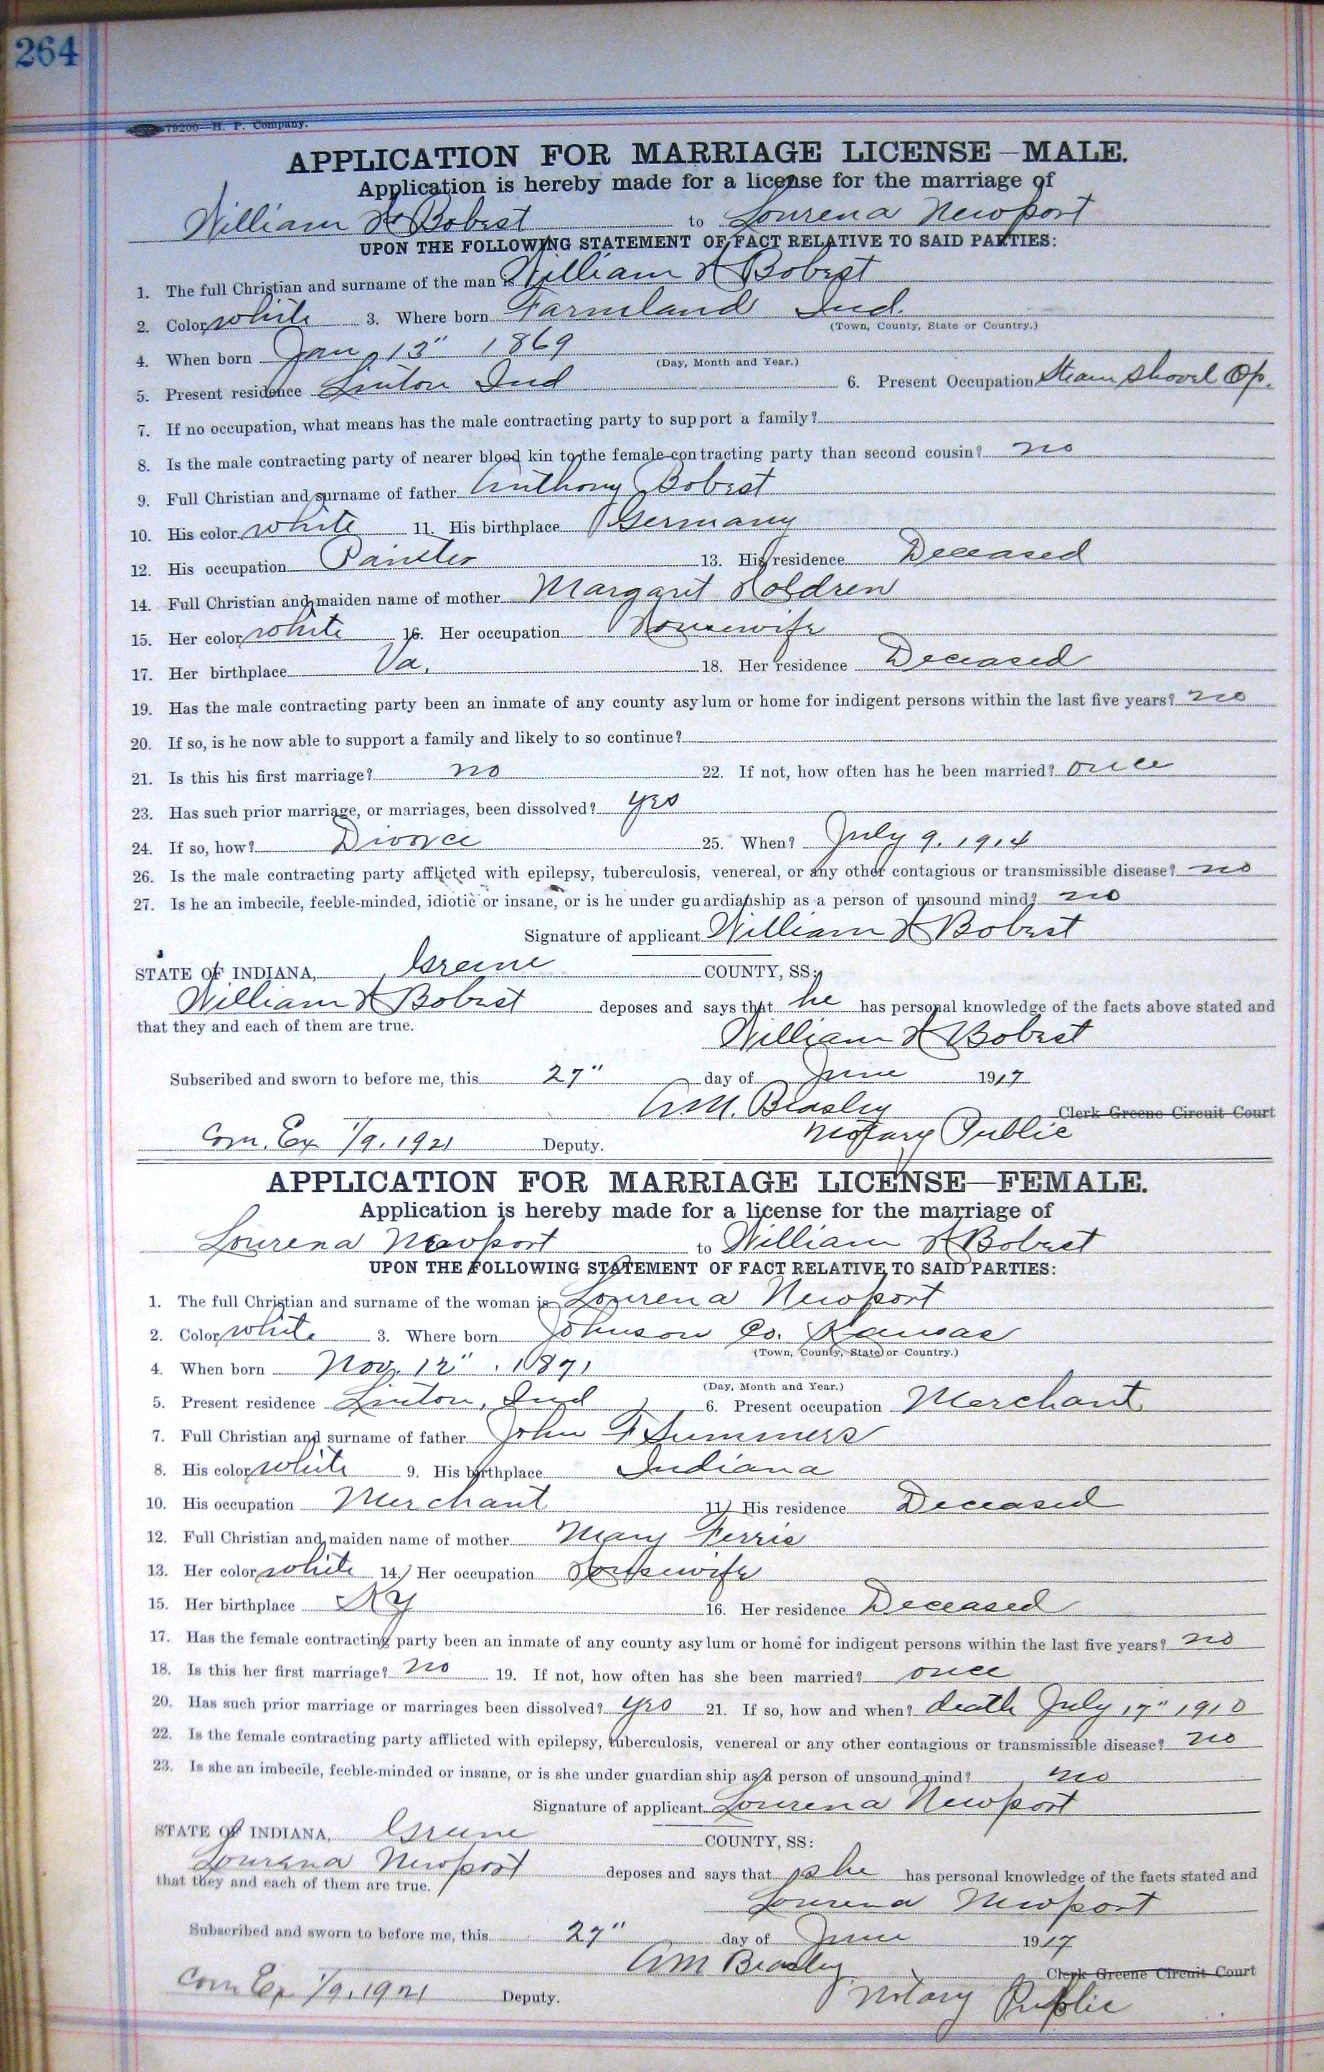 264
79200—H. P. Company.
APPLICATION FOR MARRIAGE LICENSE—MALE.
Application is hereby made for a license for the marriage of
William H Bobest to Lourena Newport
UPON THE FOLLOWING STATEMENT OF FACT RELATIVE TO SAID PARTIES:
1. The full Christian and surname of the man is William H Bobest
2. Color white 3. Where born Farmland Ind.
(Town, County, State or Country.)
4. When born Jan 13" 1869
(Day, Month and Year.)
5. Present residence Linton Ind 6. Present Occupation Steam shovel Op.
7. If no occupation, what means has the male contracting party to support a family?
8. Is the male contracting party of nearer blood kin to the female contracting party than second cousin? no
9. Full Christian and surname of father Anthony Bobest
10. His color white 11. His birthplace Germany
12. His occupation Painter 13. His residence Deceased
14. Full Christian and maiden name of mother Margaret Holdren
15. Her color white 16. Her occupation Housewife
17. Her birthplace Va. 18. Her residence Deceased
19. Has the male contracting party been an inmate of any county asylum or home for indigent persons within the last five years? no
20. If so, is he now able to support a family and likely to so continue?
21. Is this his first marriage? no 22. If not, how often has he been married? once
23. Has such prior marriage, or marriages, been dissolved? yes
24. If so, how? Divorce 25. When? July 9, 1914
26. Is the male contracting party afflicted with epilepsy, tuberculosis, venereal, or any other contagious or transmissible disease? no
27. Is he an imbecile, feeble-minded, idiotic or insane, or is he under guardianship as a person of unsound mind? no
Signature of applicant William H Bobest
STATE OF INDIANA, Greene COUNTY, SS:
William H Bobest deposes and says that he has personal knowledge of the facts above stated and
that they and each of them are true.
William H Bobest
Subscribed and sworn to before me, this 27" day of June 1917
A.M. Beasley Clerk Greene Circuit Court
Com. Ex 1/9, 1921 Deputy. Notary Public
APPLICATION FOR MARRIAGE LICENSE—FEMALE.
Application is hereby made for a license for the marriage of
Lourena Newport to William H Bobest
UPON THE FOLLOWING STATEMENT OF FACT RELATIVE TO SAID PARTIES:
1. The full Christian and surname of the woman is Lourena Newport
2. Color white 3. Where born Johnson Co. Kansas
(Town, County, State or Country.)
4. When born Nov. 12", 1871
(Day, Month and Year.)
5. Present residence Linton, Ind 6. Present occupation Merchant
7. Full Christian and surname of father John F Summers
8. His color white 9. His birthplace Indiana
10. His occupation Merchant 11. His residence Deceased
12. Full Christian and maiden name of mother Mary Ferris
13. Her color white 14. Her occupation Housewife
15. Her birthplace Ky 16. Her residence Deceased
17. Has the female contracting party been an inmate of any county asylum or home for indigent persons within the last five years? no
18. Is this her first marriage? no 19. If not, how often has she been married? once
20. Has such prior marriage or marriages been dissolved? yes 21. If so, how and when? death July 17" 1910
22. Is the female contracting party afflicted with epilepsy, tuberculosis, venereal or any other contagious or transmissible disease? no
23. Is she an imbecile, feeble-minded or insane, or is she under guardianship as a person of unsound mind? no
Signature of applicant Lourena Newport
STATE OF INDIANA, Greene COUNTY, SS:
Lourena Newport deposes and says that she has personal knowledge of the facts stated and
that they and each of them are true.
Lourena Newport
Subscribed and sworn to before me, this 27" day of June 1917
A M Beasley Clerk Greene Circuit Court
Com Ex 1/9, 1921 Deputy. Notary Public